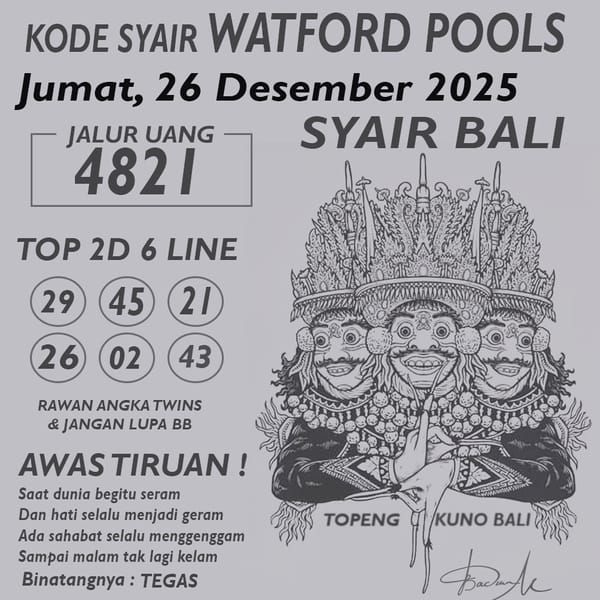 KODE SYAIR WATFORD POOLS
Jumat, 26 Desember 2025
SYAIR BALI
JALUR UANG
4821
TOP 2D 6 LINE
29 45 21
26 02 43
RAWAN ANGKA TWINS
& JANGAN LUPA BB
AWAS TIRUAN !
Saat dunia begitu seram
Dan hati selalu menjadi geram
Ada sahabat selalu menggenggam
Sampai malam tak lagi kelam
Binatangnya : TEGAS
TOPENG KUNO BALI